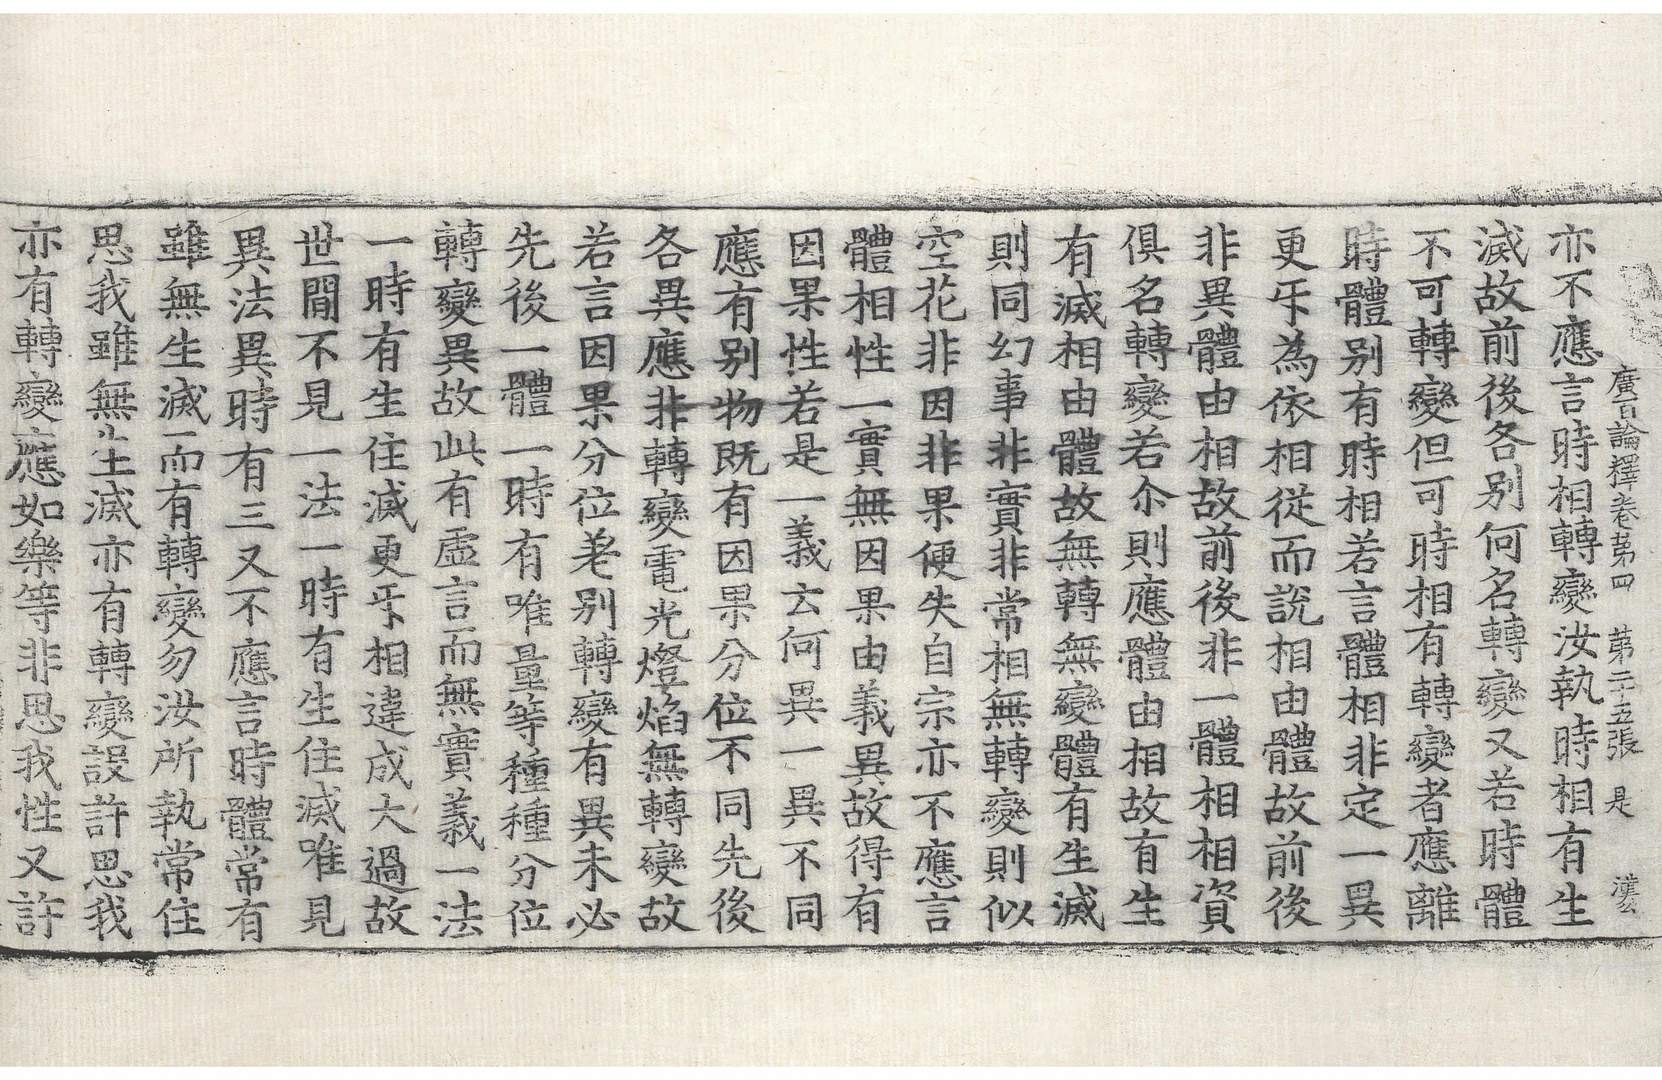 廣百論釋卷苐四 苐二十五張 是
亦不應言時相轉變汝執時相有生
滅故前後各别何名轉變又若時體
不可轉變但可時相有轉變者應離
時體别有時相若言體相非定一異
更乐為依相從而說相由體故前後
非異體由相故前後非一體相相資
俱名轉變若尒則應體由相故有生
有滅相由體故無轉無變體有生滅
則同幻事非實非常相無轉變則似
空花非因非果便失自宗亦不應言
體相性一實無因果由義異故得有
因果性若是一義云何異一異不同
應有别物既有因果分位不同先後
各異應非轉變電光燈焰無轉變故
若言因果分位差别轉變有異未必
先後一體一時有唯量等種種分位
轉變異故此有虛言而無實義一法
一時有生住滅更乐相違成大過故
世間不見一法一時有生住滅唯見
異法異時有三又不應言時體常有
雖無生滅而有轉變勿汝所執常住
思我雖無生滅亦有轉變設許思我
亦有轉變應如樂等非思我性又許